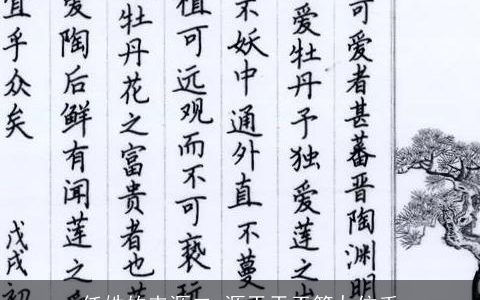 可爱者甚蕃晋陶渊明
爱牡丹予独爱莲之出
不妖中通外直不蔓
植可远观而不可亵玩
牡丹花之富贵者也
爱陶后鲜有闻莲之
宜乎众矣
戊戌初